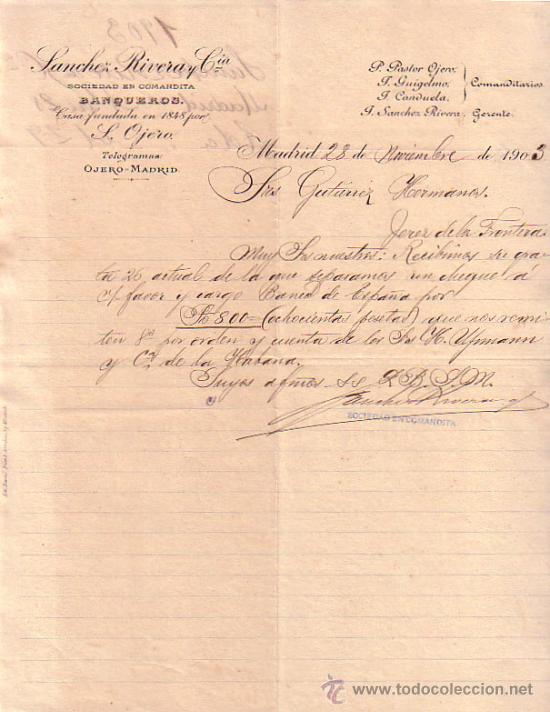 Sanchez Rivera y Cia
SOCIEDAD EN COMANDITA
BANQUEROS.
Casa fundada en 1848 por
S. Ojero.
Telegramas
OJERO-MADRID.
P. Pastor Ojero.
T. Guigelmo.
T. Canduela.
Comanditarios.
J. Sanchez Rivera, Gerente.
Madrid 28 de Noviembre de 1903
Srs Gutiérrez Hermanos.
Jerez de la Frontera
Muy Srs nuestros: Recibimos su gra-
ta 26 actual de la que separamos un cheque á
n/ favor y cargo Banco de España por
Pts 800= (ochocientas pesetas) que nos remi-
ten Vds por orden y cuenta de los Srs H. Upmann
y Cª de la Habana.
Suyos afmos S.S. Q.B.S.M.
Sanchez Rivera y C
SOCIEDAD EN COMANDITA
www.todocoleccion.net